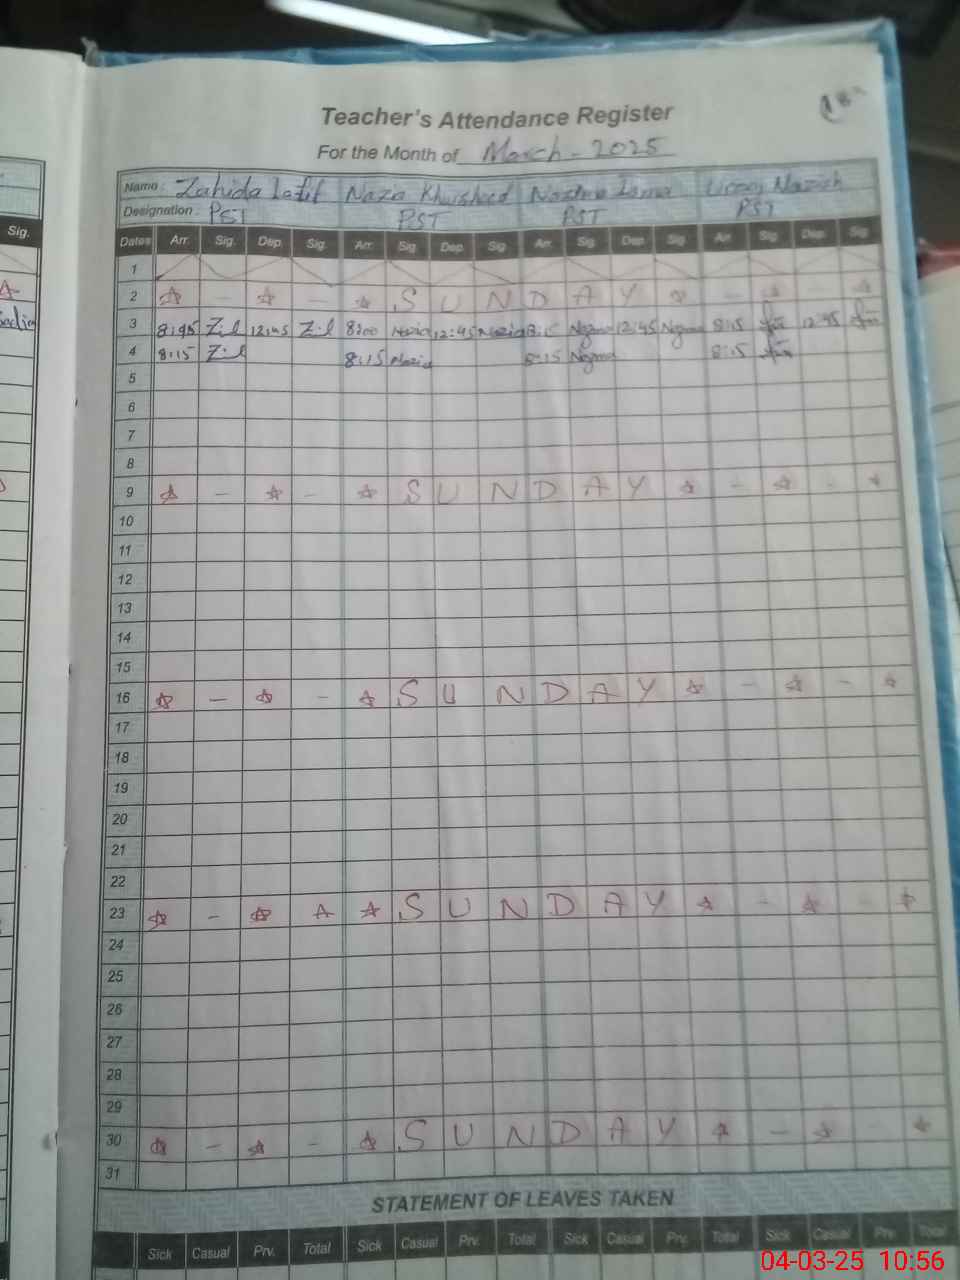 Teacher's Attendance Register
For the Month of March - 2025
Name: Zahida Latif Nazia Khursheed
Designation: PST PST PST PST
Sig. Dates Arr. Sig. Dep. Sig. Arr. Sig. Dep. Sig. Arr. Sig. Dep. Sig. Arr. Sig. Dep. Sig.
1
2 ☆ - ☆ - ☆ S U N D A Y ☆ - ☆ - ☆
3 8:45 Z.l 12:45 Z.l 8:00 Nazia 12:45 Nazia 8:15 Najma 12:45 Najma 8:15 12:45
4 8:15 Z.l 8:15 Nazia 8:15 Najma 8:15
5
6
7
8
9 ☆ - ☆ - ☆ S U N D A Y ☆ - ☆ - ☆
10
11
12
13
14
15
16 ☆ - ☆ - ☆ S U N D A Y ☆ - ☆ - ☆
17
18
19
20
21
22
23 ☆ - ☆ ☆ ☆ S U N D A Y ☆ - ☆ - ☆
24
25
26
27
28
29
30 ☆ - ☆ - ☆ S U N D A Y ☆ - ☆ - ☆
31
STATEMENT OF LEAVES TAKEN
Sick Casual Prv. Total Sick Casual Prv. Total Sick Casual Prv. Total Sick Casual Prv. Total
04-03-25 10:56